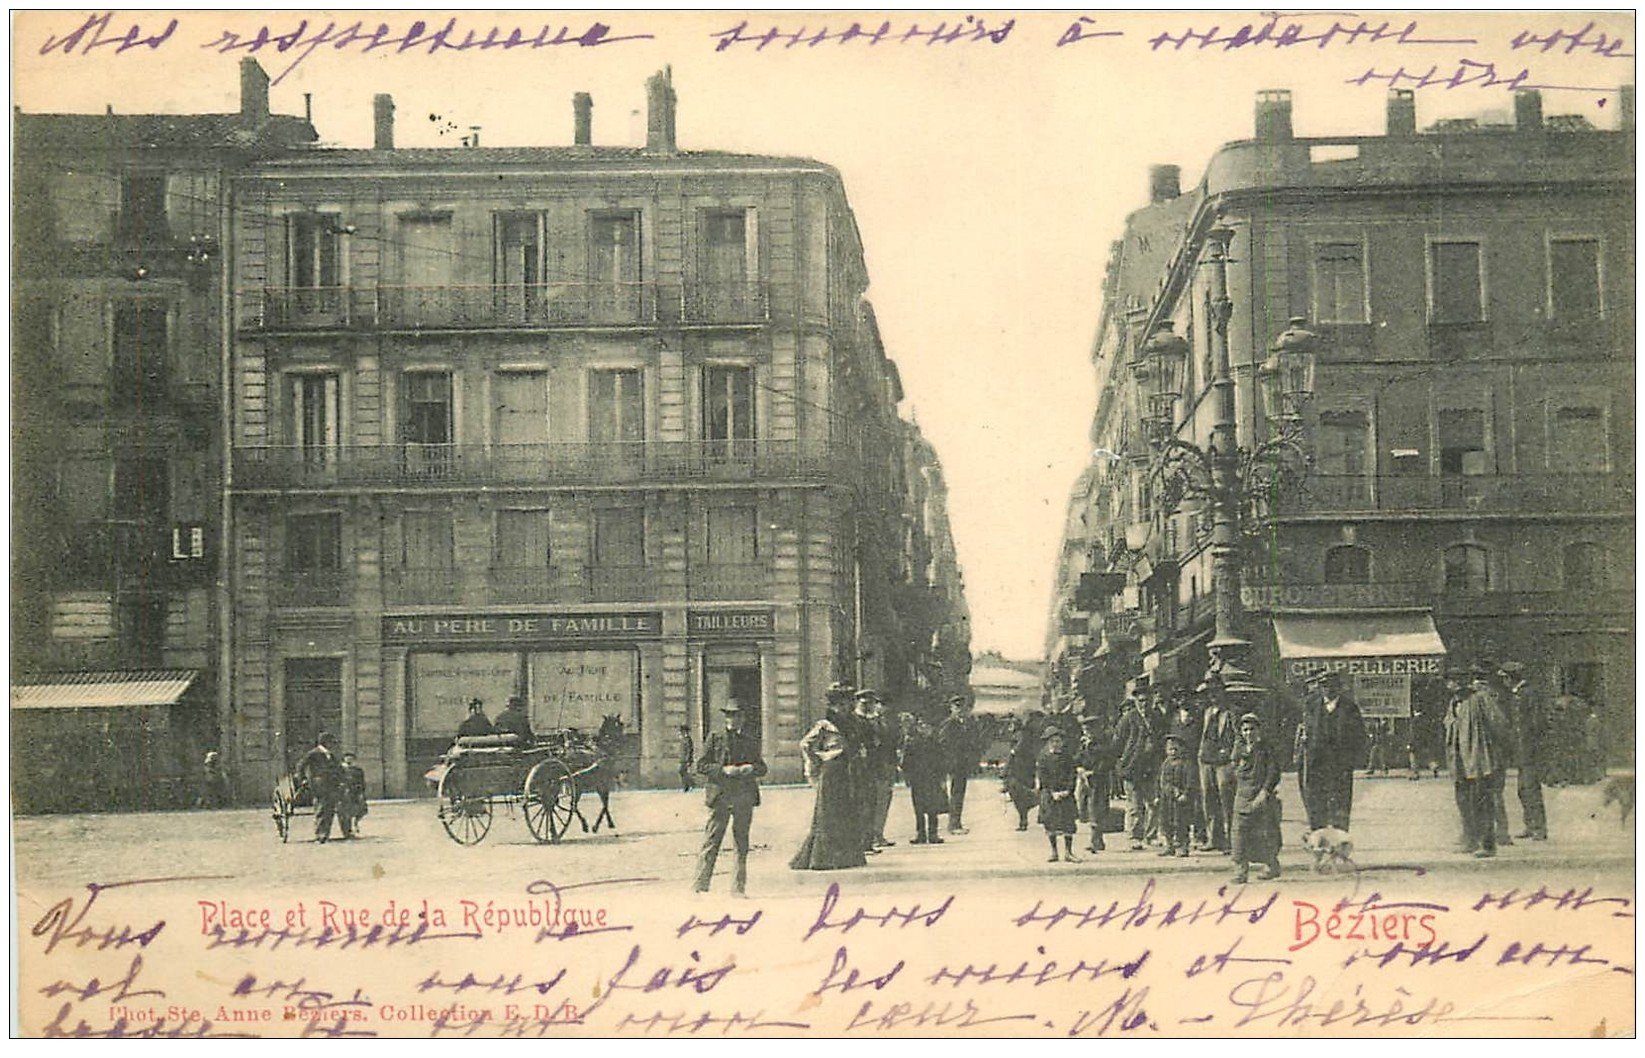 Mes respectueux souvenirs à madame votre
mère.
AU PERE DE FAMILLE
TAILLEURS
AU PERE
DE FAMILLE
CHAPELLERIE
Place et Rue de la République
Béziers
Vous remerciant de vos bons souhaits de nou-
vel an, vous fais les miens et vous em-
Phot. Ste. Anne Béziers. Collection E. D. B.
brasse de tout mon cœur. M. - Thérèse